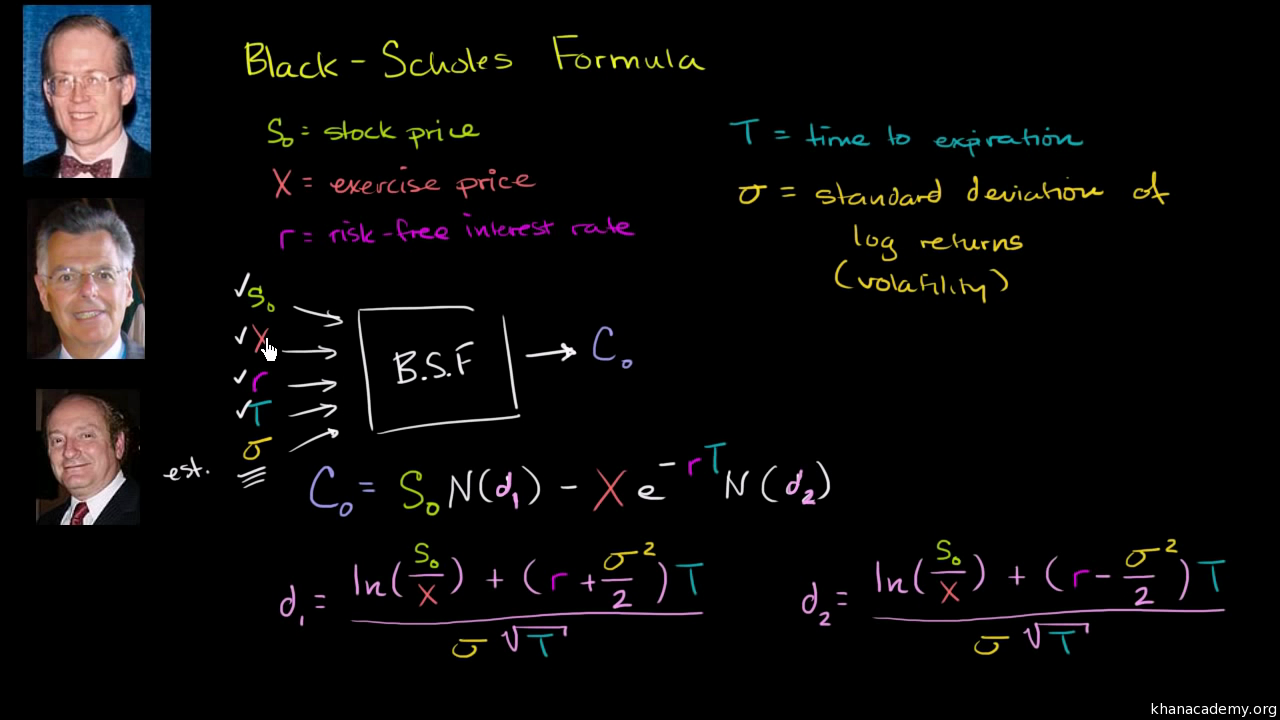 Black-Scholes Formula
S₀ = stock price
X = exercise price
r = risk-free interest rate
T = time to expiration
σ = standard deviation of
log returns
(volatility)
✓S₀
✓X
✓r
✓T
est. σ
B.S.F → C₀
C₀ = S₀N(d₁) - Xe^(-rT)N(d₂)
d₁ = (ln(S₀/X) + (r + σ²/2)T) / (σ√T)
d₂ = (ln(S₀/X) + (r - σ²/2)T) / (σ√T)
khanacademy.org